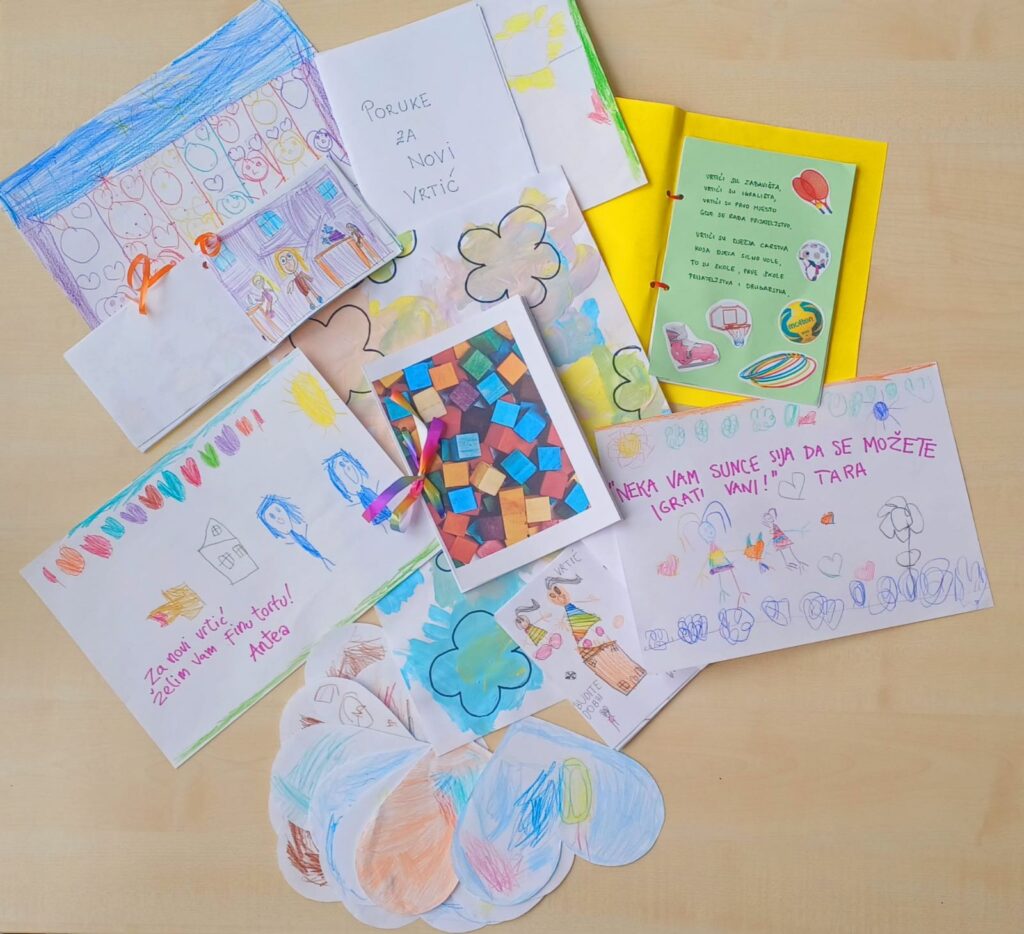 PORUKE
ZA
NOVI
VRTIĆ
VRTIĆI SU ZABAVIŠTA,
VRTIĆI SU IGRALIŠTA,
VRTIĆI SU PRVO MJESTO
GDJE SE RAĐA PRIJATELJSTVO.
VRTIĆI SU DJEČJA CARSTVA
KOJA DJECA SILNO VOLE,
TO SU ŠKOLE, PRVE ŠKOLE
PRIJATELJSTVA I DRUGARSTVA.
molten
"NEKA VAM SUNCE SIJA DA SE MOŽETE
IGRATI VANI!" TARA
Za novi vrtić
želim vam finu tortu!
Antea
VRTIĆ
BUDITE
DOBRI